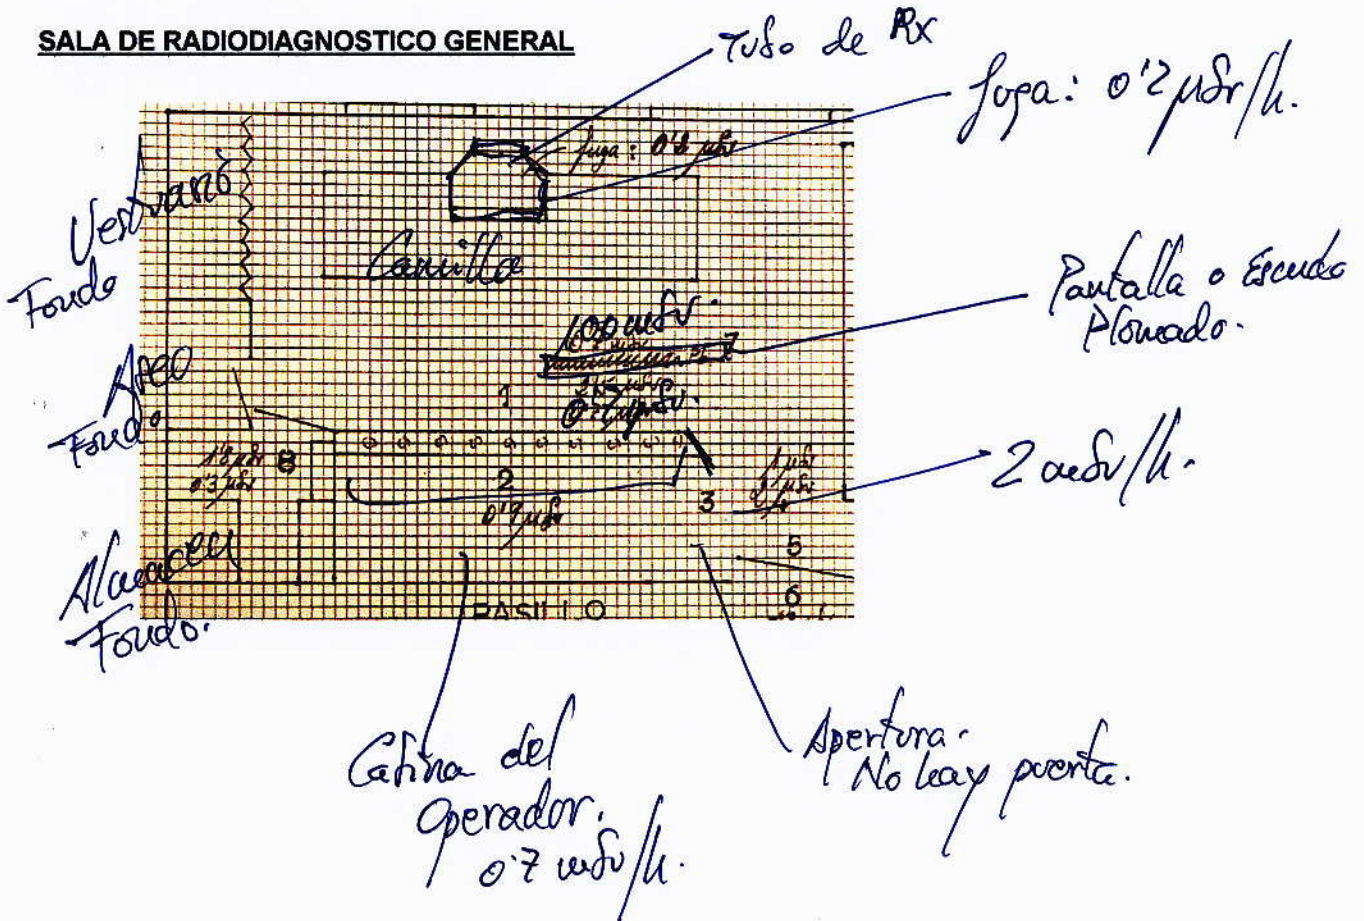 SALA DE RADIODIAGNOSTICO GENERAL
Tubo de Rx
fuga: 0'2 µSv/h.
fuga: 0'2 µSv
Vestuario
Fondo
Camilla
Pantalla o Escudo
Plomado.
100 mSv.
7
Aseo
Fondo.
1
2 mSv/h.
8
0'3 µSv
2
3
1 µSv
4
5
6
Almacen
Fondo.
PASILLO
Cabina del
operador.
0'7 mSv/h.
Apertura.
No hay puerta.